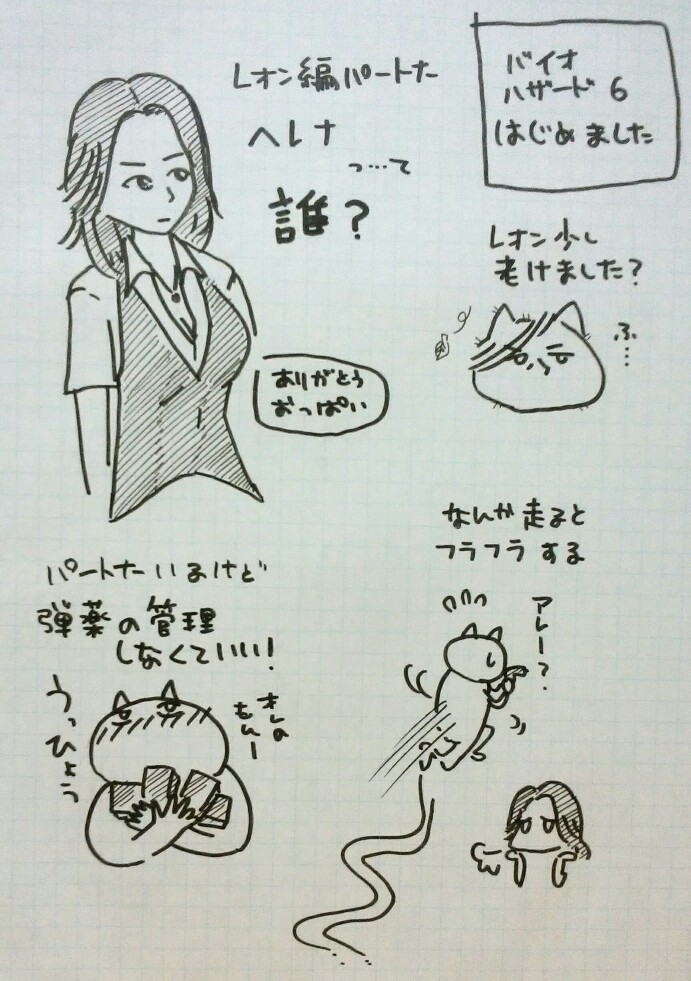 バイオ
ハザード 6
はじめました
レオン編パートナー
ヘレナ
っ…て
誰?
ありがとう
おっぱい
レオン少し
老けました?
ふ…
なんか走ると
フラフラする
アレー?
パートナーいるけど
弾薬の管理
しなくていい!
うっひょう
オレの
もんー